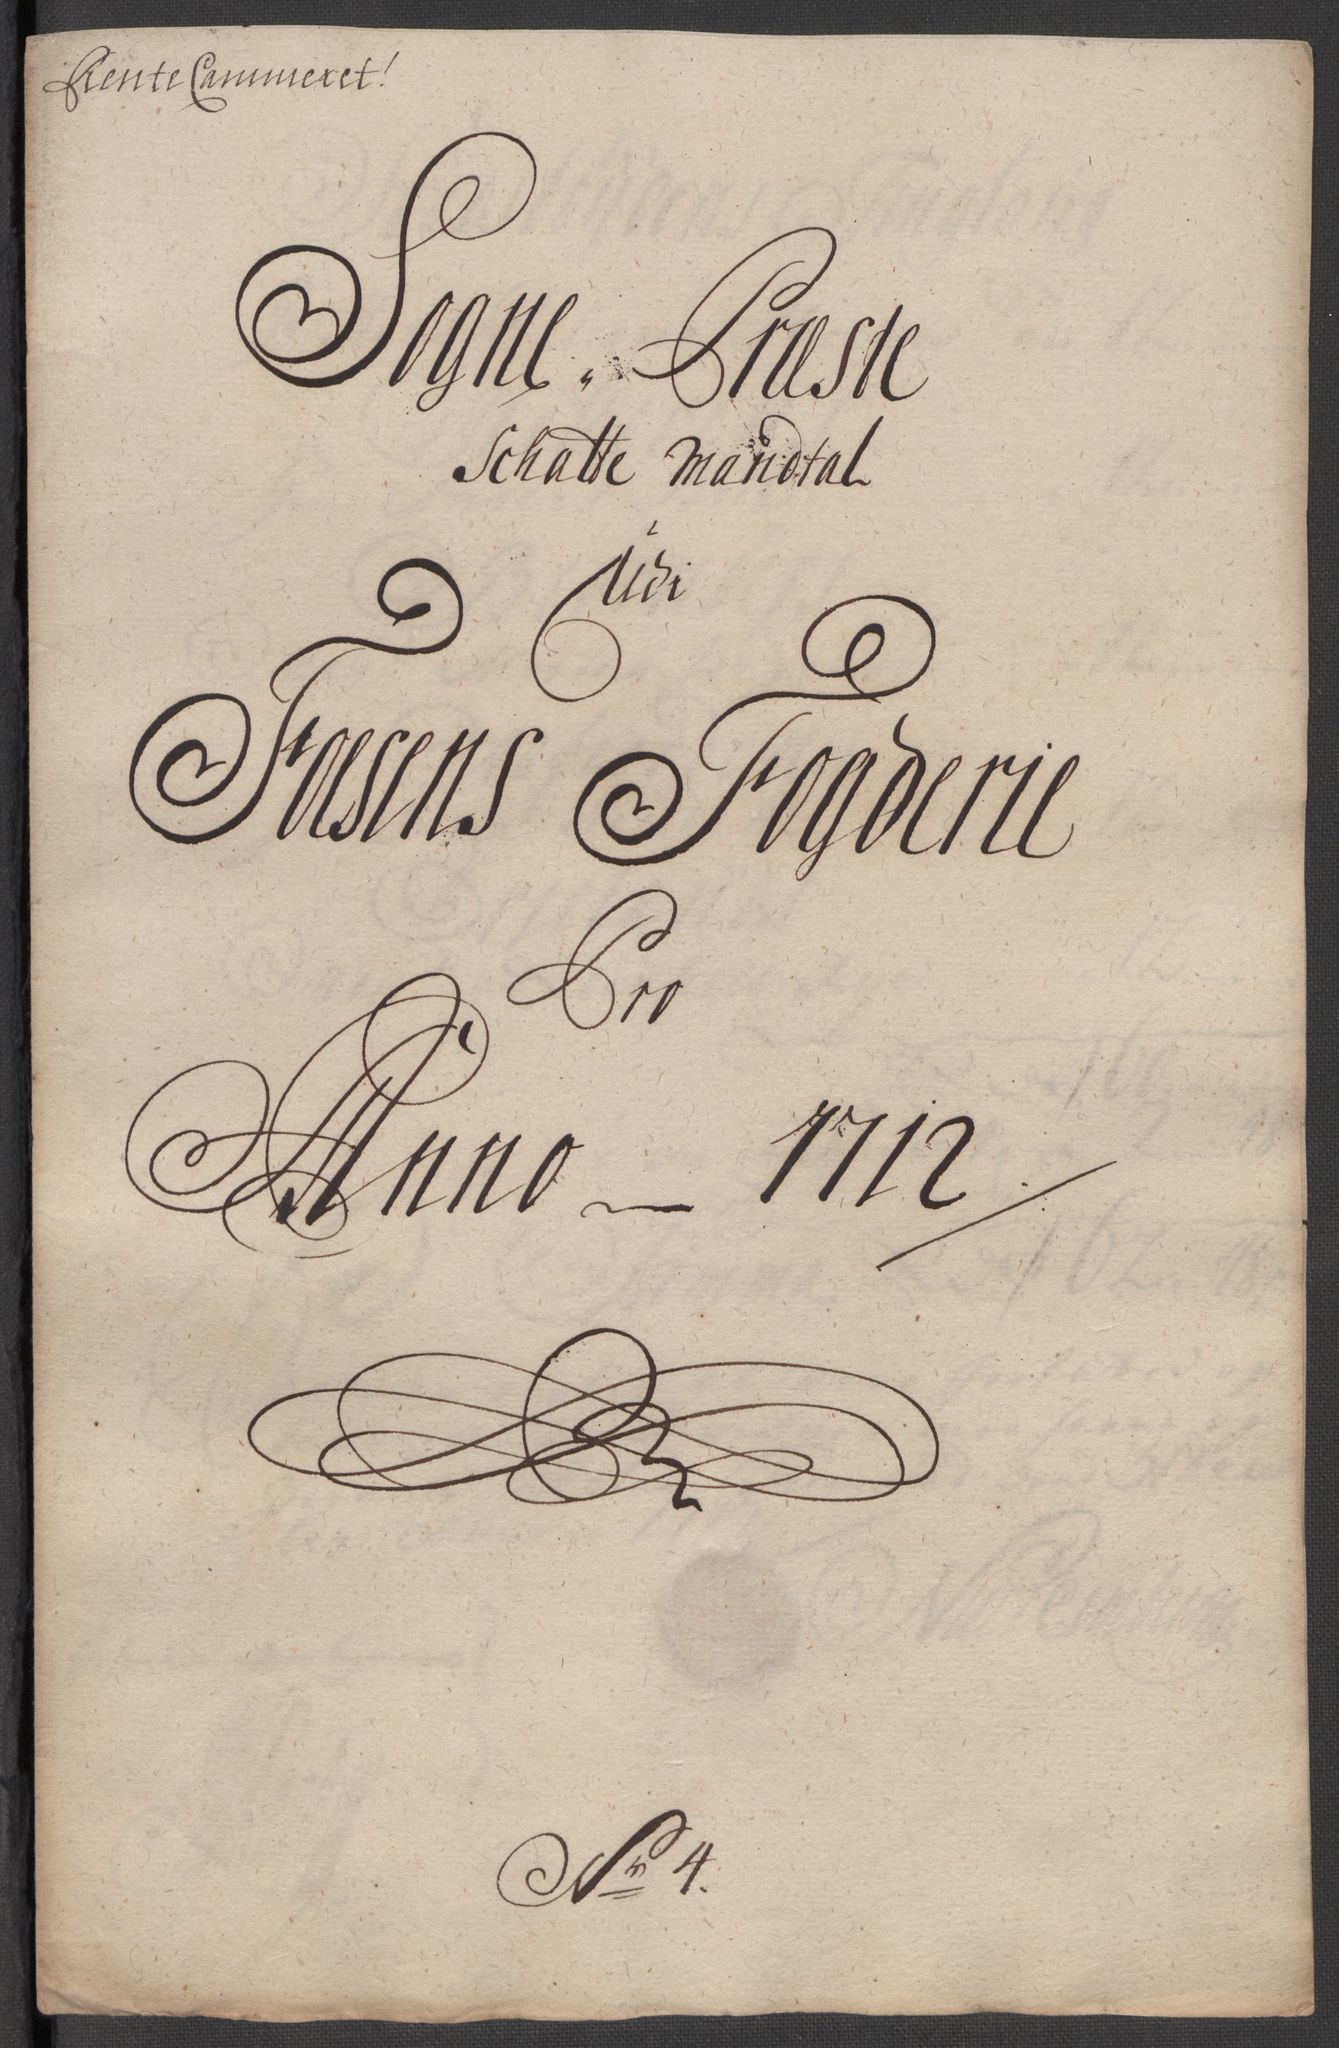 Rente Cammeret!
Sogne-Præste
Schatte Mandtal
Udi
Fosens Fogderie
Pro
Anno - 1712
No 4.